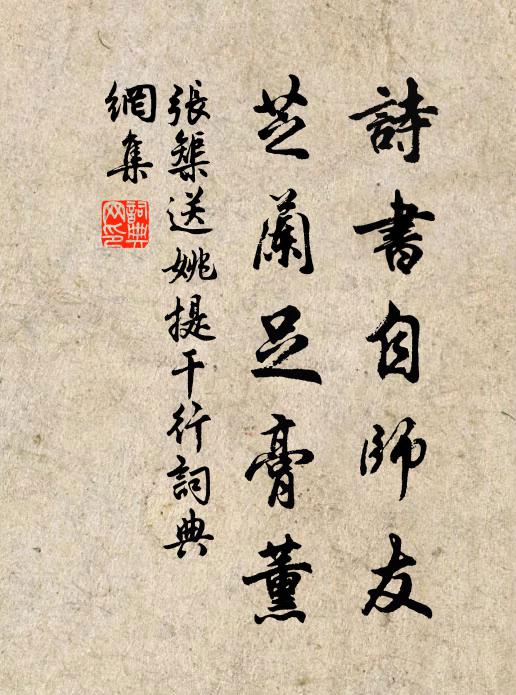 詩書自師友
芝蘭足膏薰
張榘送姚提干行詞典
網集
詞典
网印